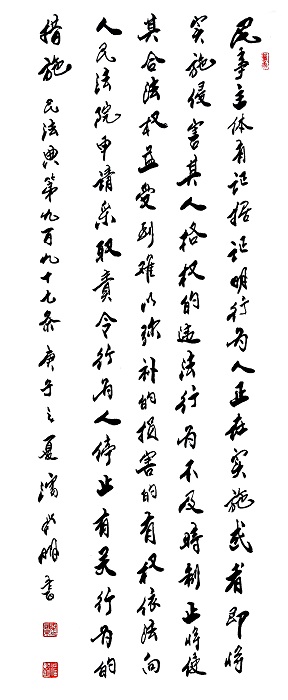 民事主体有证据证明行为人正在实施或者即将
实施侵害其人格权的违法行为不及時制止将使
其合法权益受到难以弥补的损害的有权依法向
人民法院申请采取责令行为人停止有关行为的
措施 民法典第九百九十七条 庚子之夏 明书